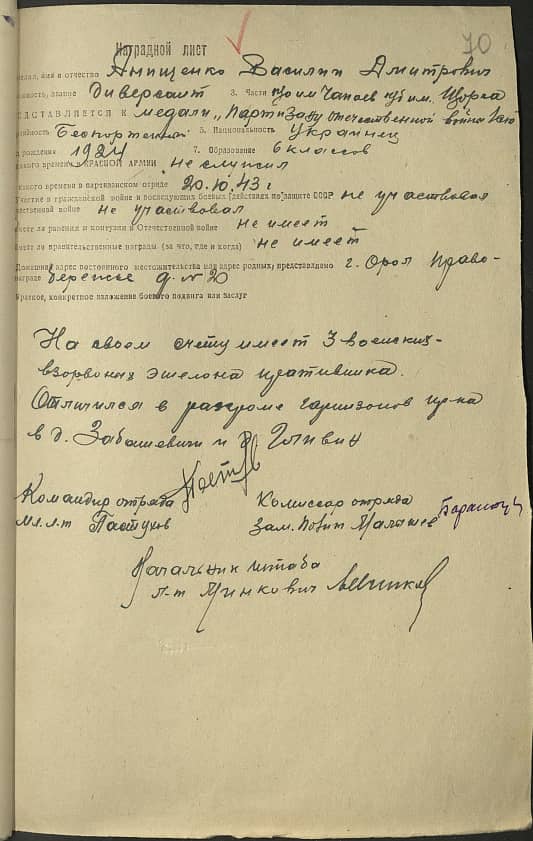 70
Наградной лист
милия, имя и отчество Анищенко Василий Дмитрович
должность, звание Диверсант 3. Части по им Чапаев п/б им. Щорса
ЕДСТАВЛЯЕТСЯ К медали "Партизану отечественной войны I ст
тийность Беспортейный 5. Национальность Украинец
д рождения 1924 7. Образование 6 классов
какого времени КРАСНОЙ АРМИИ не служил
какого времени в партизанском отряде 20.10.43 г
Участие в гражданской войне и последующих боевых действиях по защите СССР не участвовал
ественной войне не участвовал
Имеет ли ранения и контузии в Отечественной войне не имеет
Имеет ли правительственные награды (за что, где и когда) не имеет
Домашний адрес постоянного местожительства или адрес родных, представляемо г. Орол Право-
награде бережье д. N 20
Краткое, конкретное изложение боевого подвига или заслуг
На своем счету имеет 3 воемских-
взорваных эшелона пративника.
Отличился в разгроме гарнизонов пр-ка
в д. Забашевичи и Гливин
Командир отряда Комиссар отряда
мл. л-т Пастухов Зам. Малышев
Начальник штаба
л-т Минкович